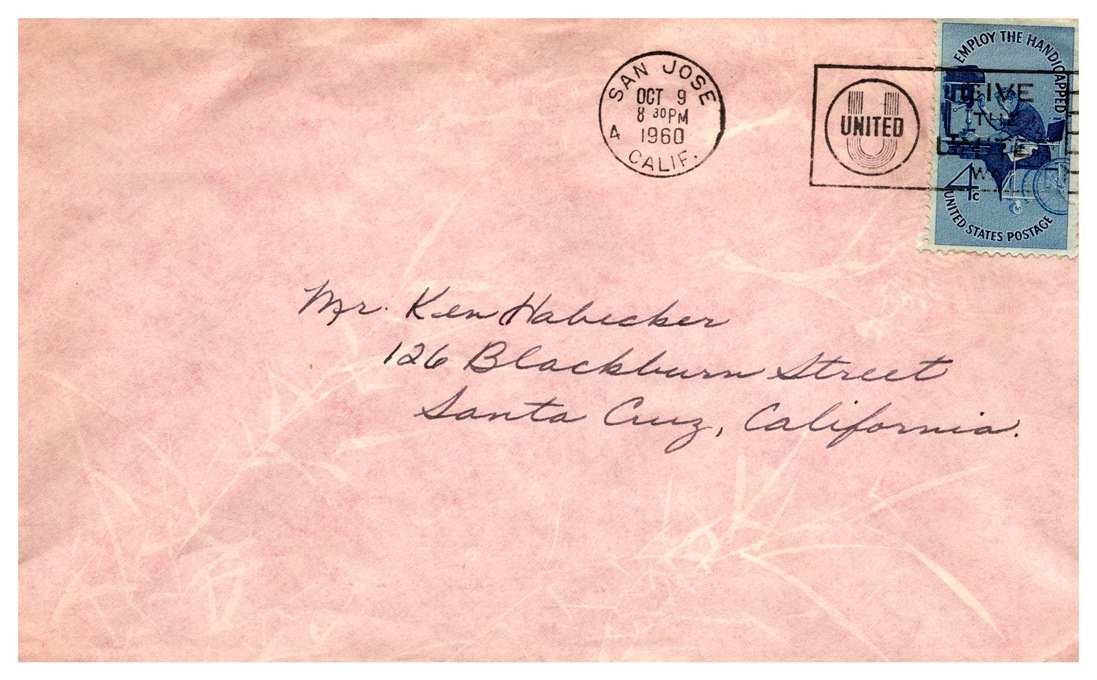 SAN JOSE
OCT 9
8 30PM
1960
4 CALIF.
UNITED
GIVE
THE
UNITED
WAY
EMPLOY THE HANDICAPPED
4c
UNITED STATES POSTAGE
Mr. Ken Habecker
126 Blackburn Street
Santa Cruz, California.